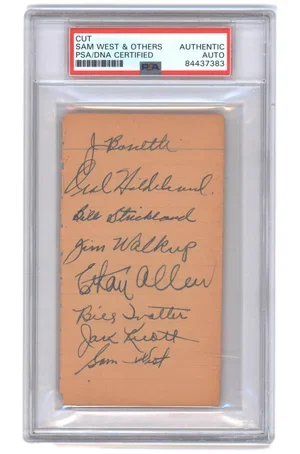 CUT
SAM WEST & OTHERS AUTHENTIC
PSA/DNA CERTIFIED AUTO
PSA 84437383
J Bonetti
Oral Hildebrand
Bill Strickland
Jim Walkup
Ethan Allen
Bill Trotter
Jack Knott
Sam West